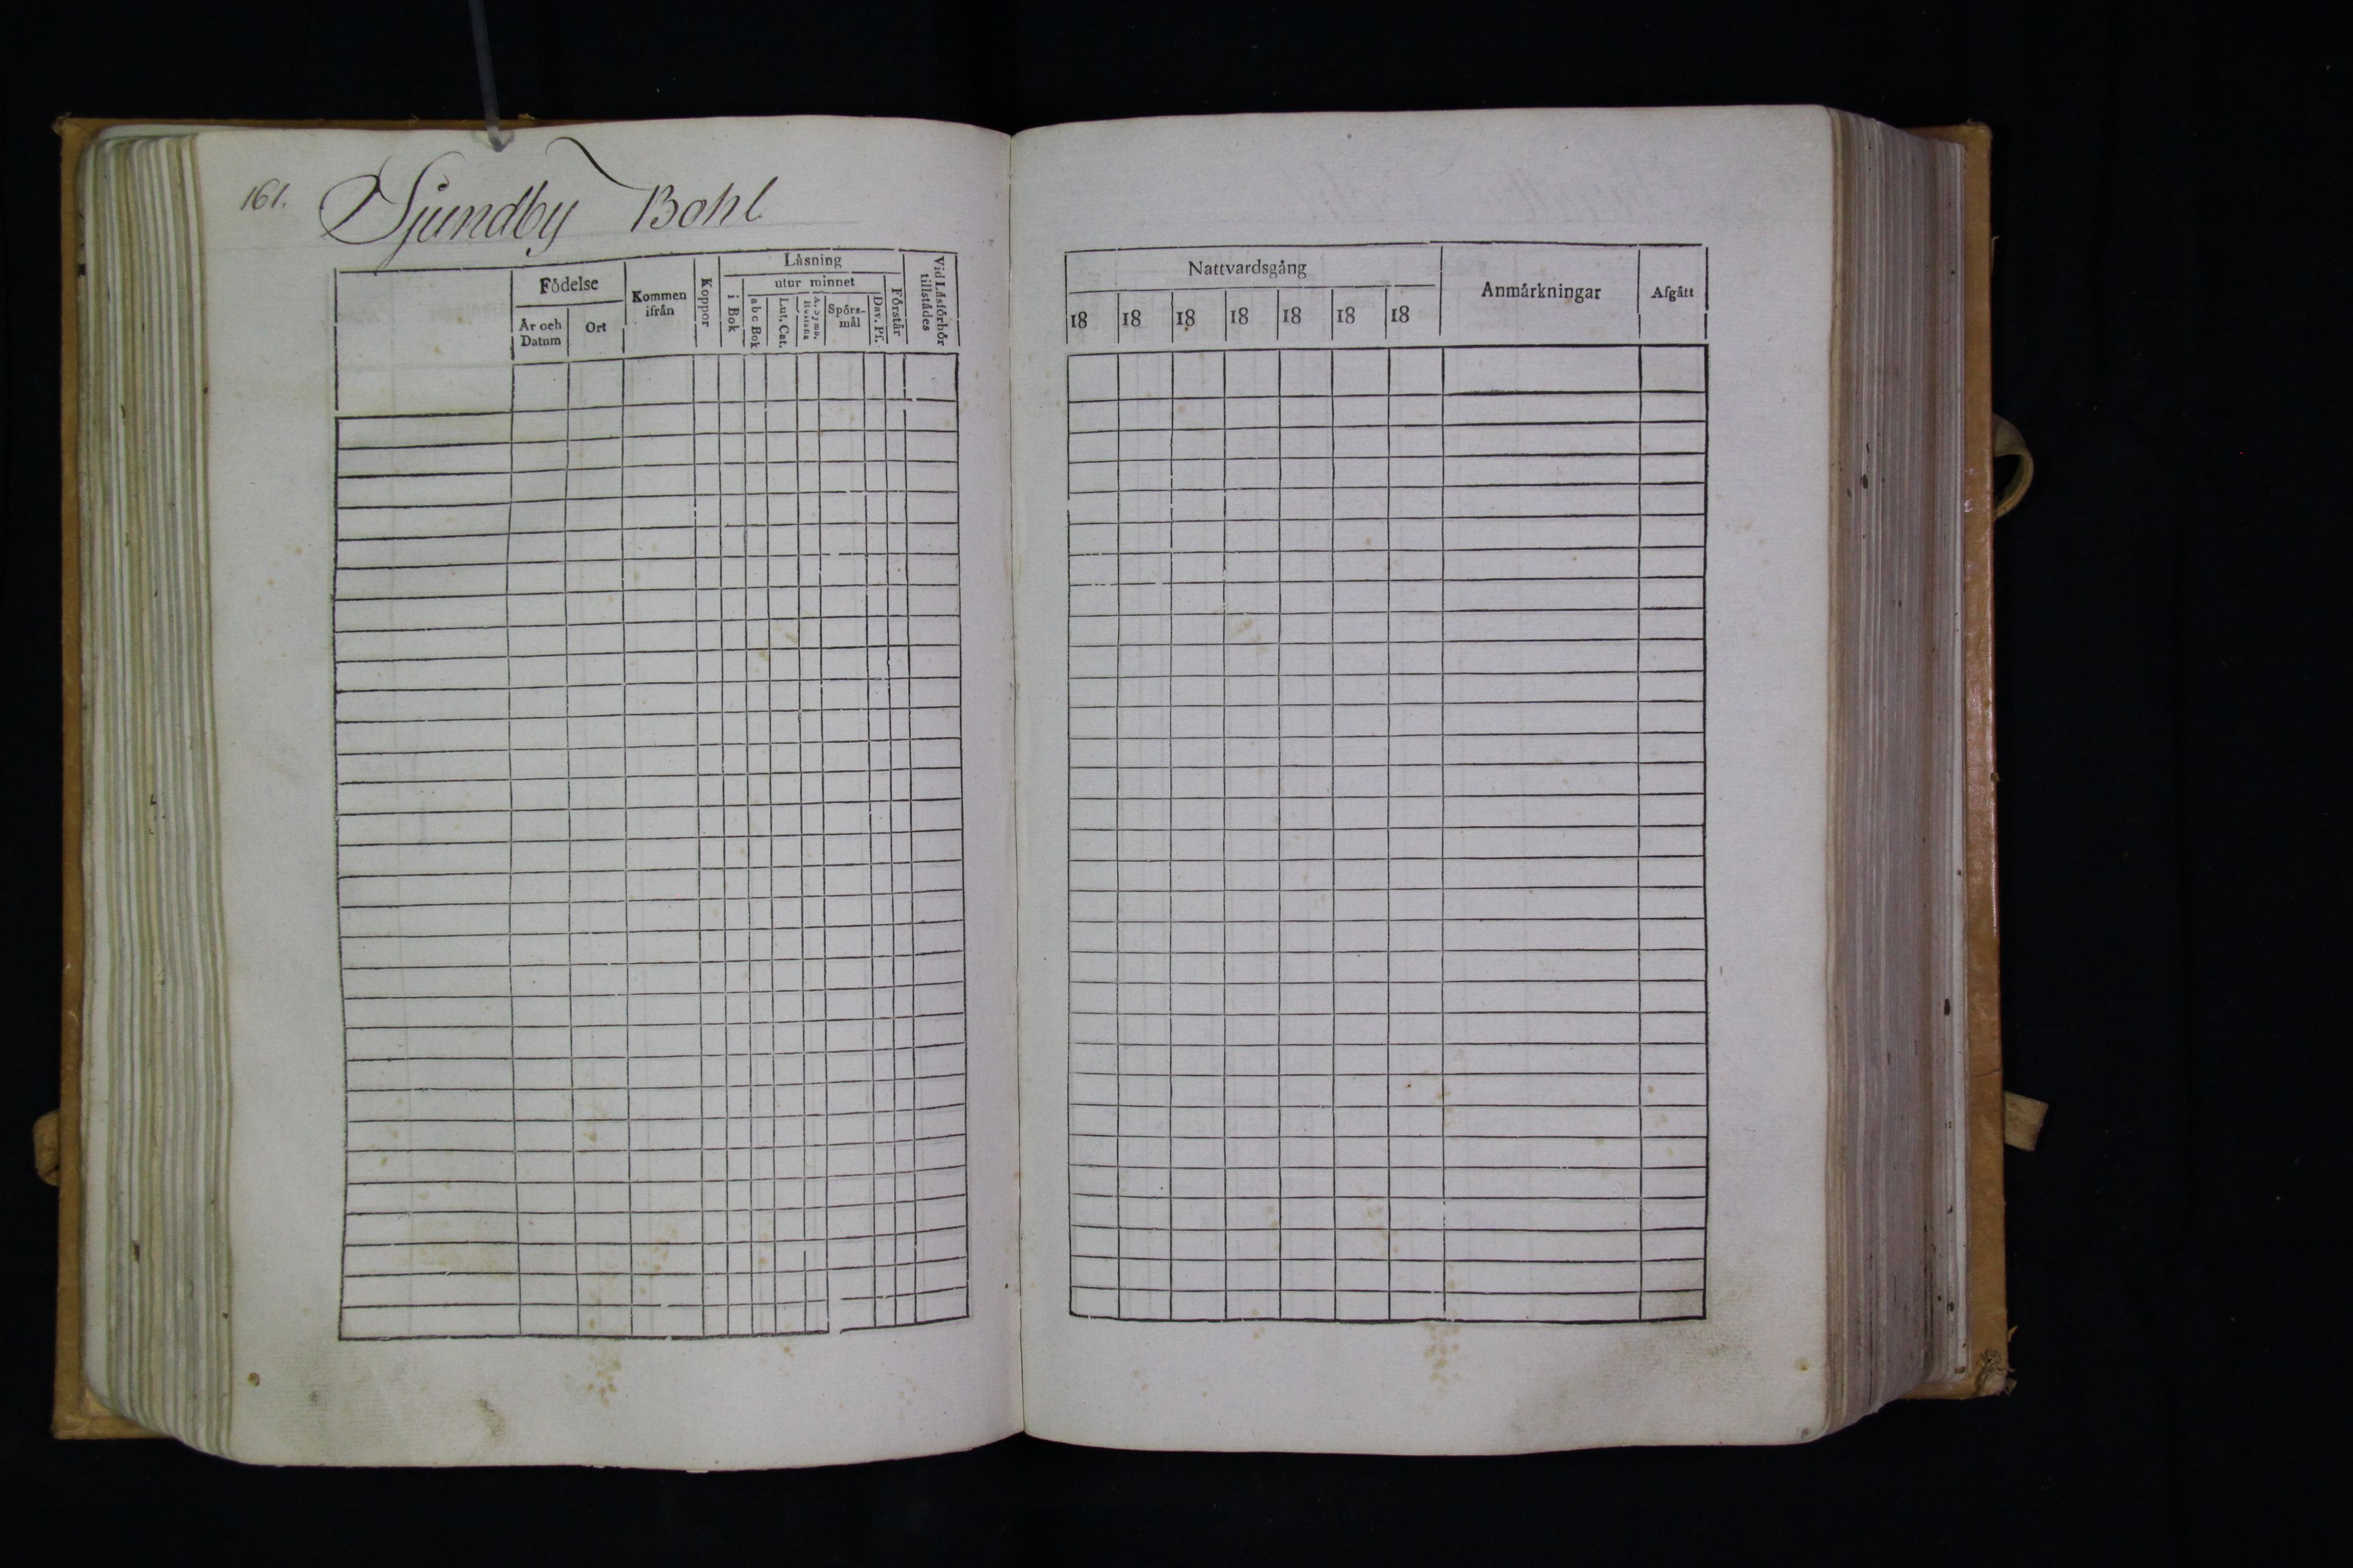 161. Sjundby Bohl
Födelse
År och Datum
Ort
Kommen ifrån
Koppor
Läsning
i Bok
utur minnet
abc Bok
Lut. Cat.
A. Symb.
Spörs-mål
Dav. Ps.
Förstår
Vid Läsförhör tillstädes
Nattvardsgång
18 18 18 18 18 18 18
Anmärkningar
Afgått